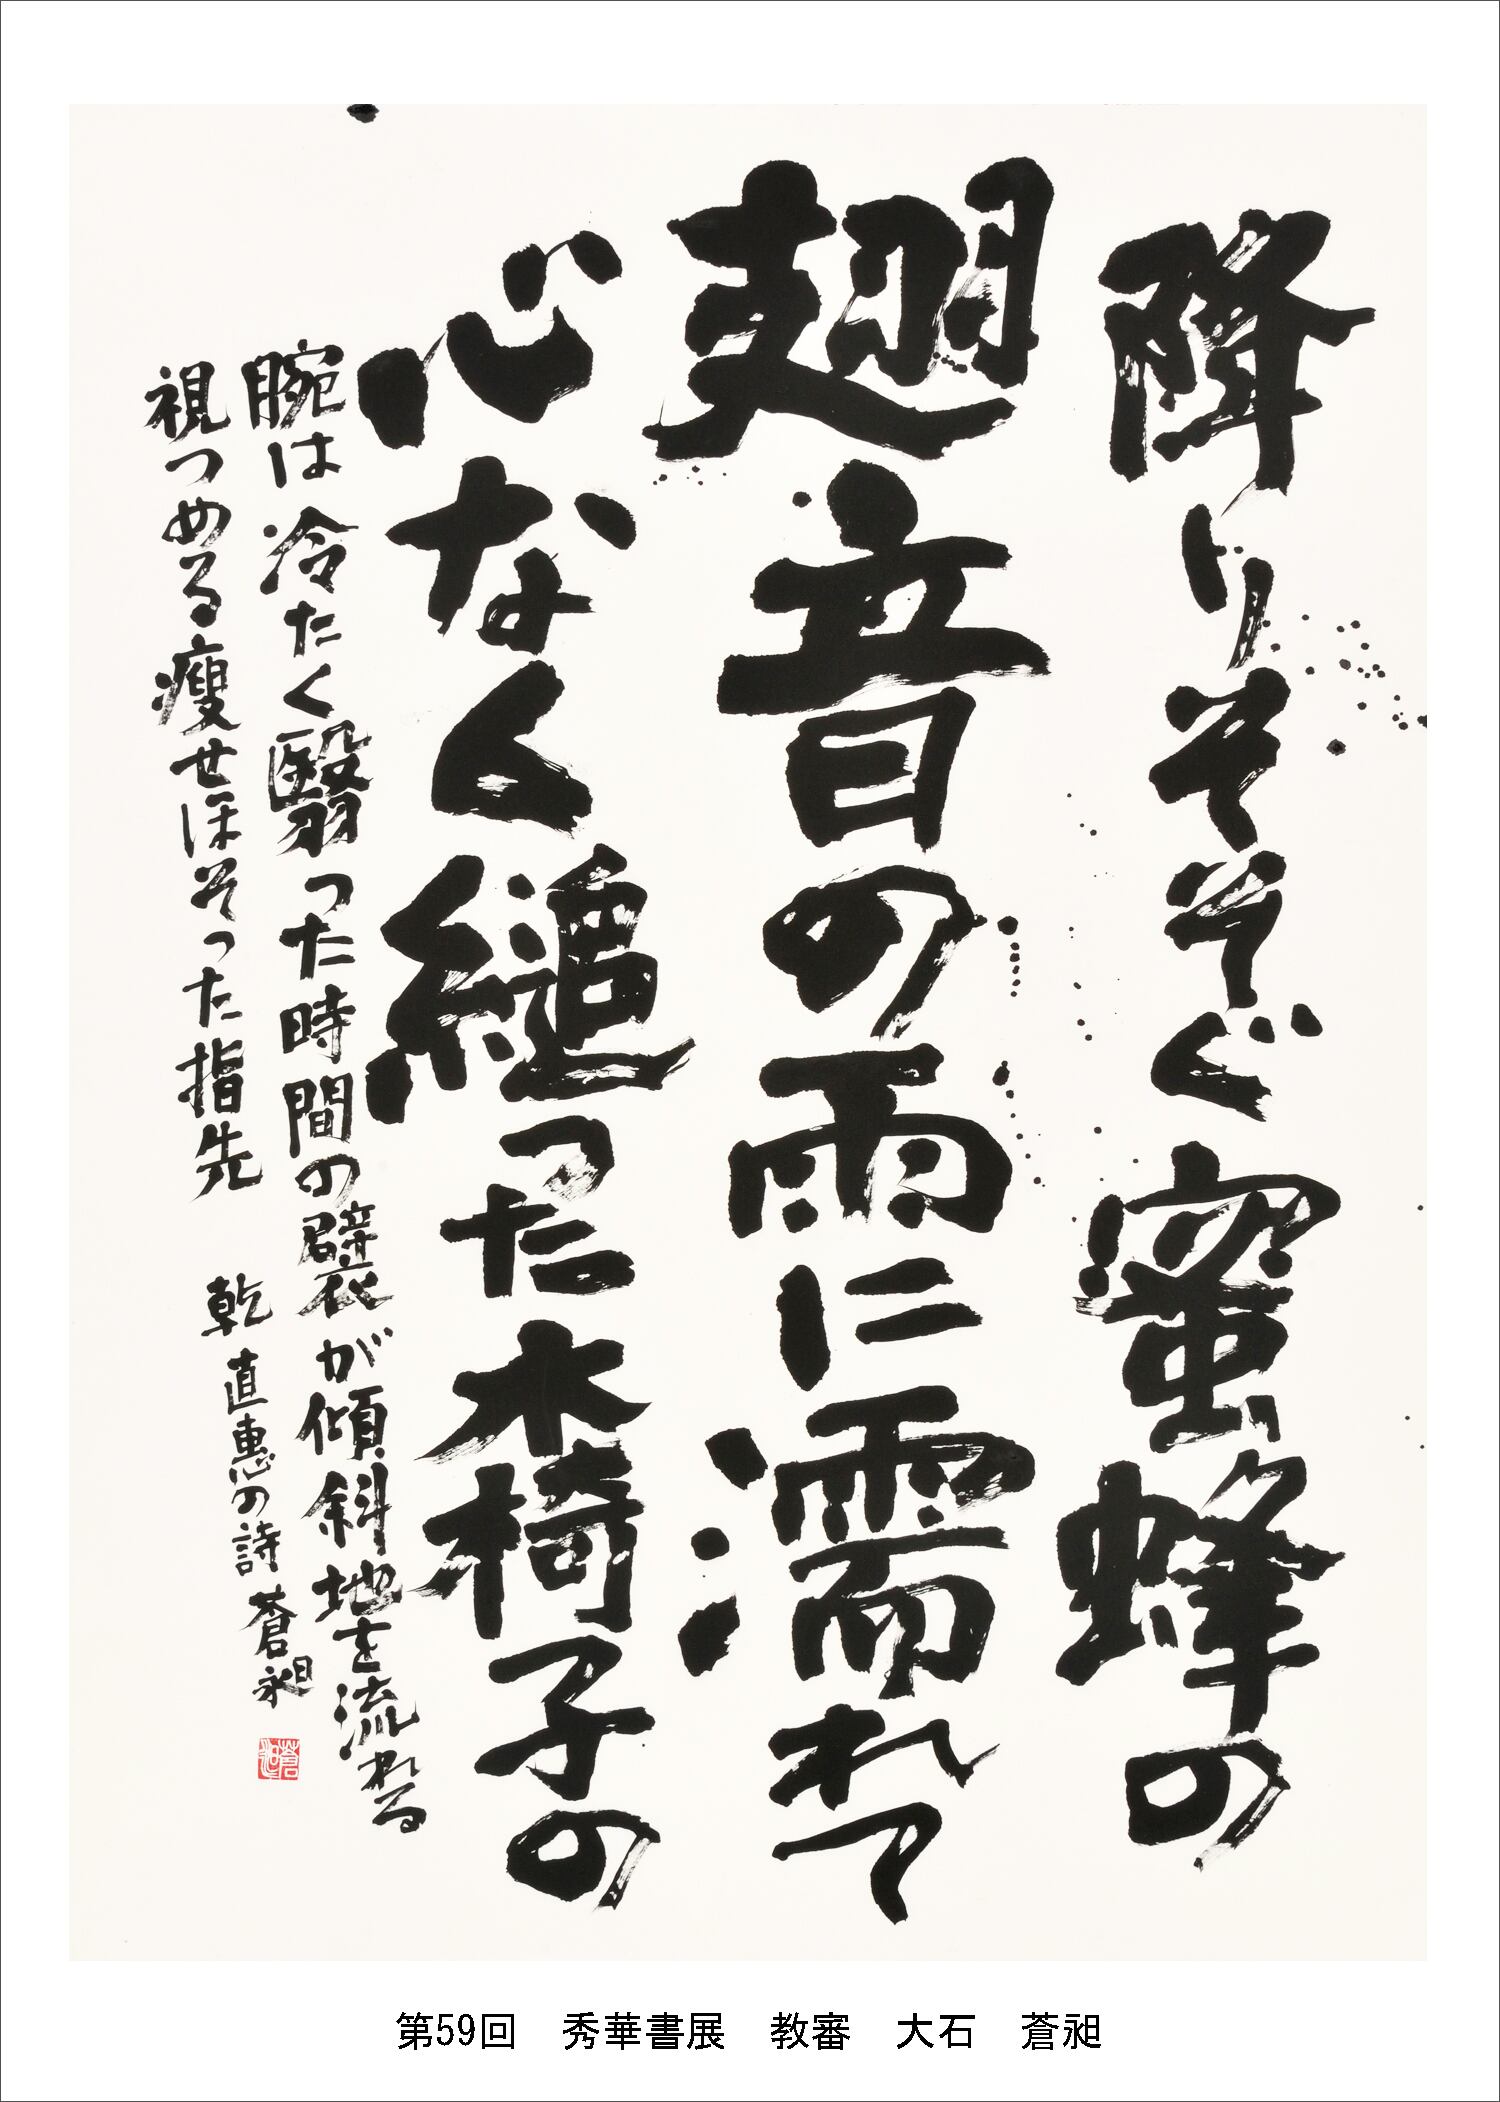 降りそそぐ蜜蜂の
翅音の雨に濡れて
心なく縋った木椅子の
腕は冷たく翳った時間の襞が傾斜地を流れる
視つめる痩せほそった指先
乾直恵の詩 蒼昶
第59回 秀華書展 教審 大石 蒼昶